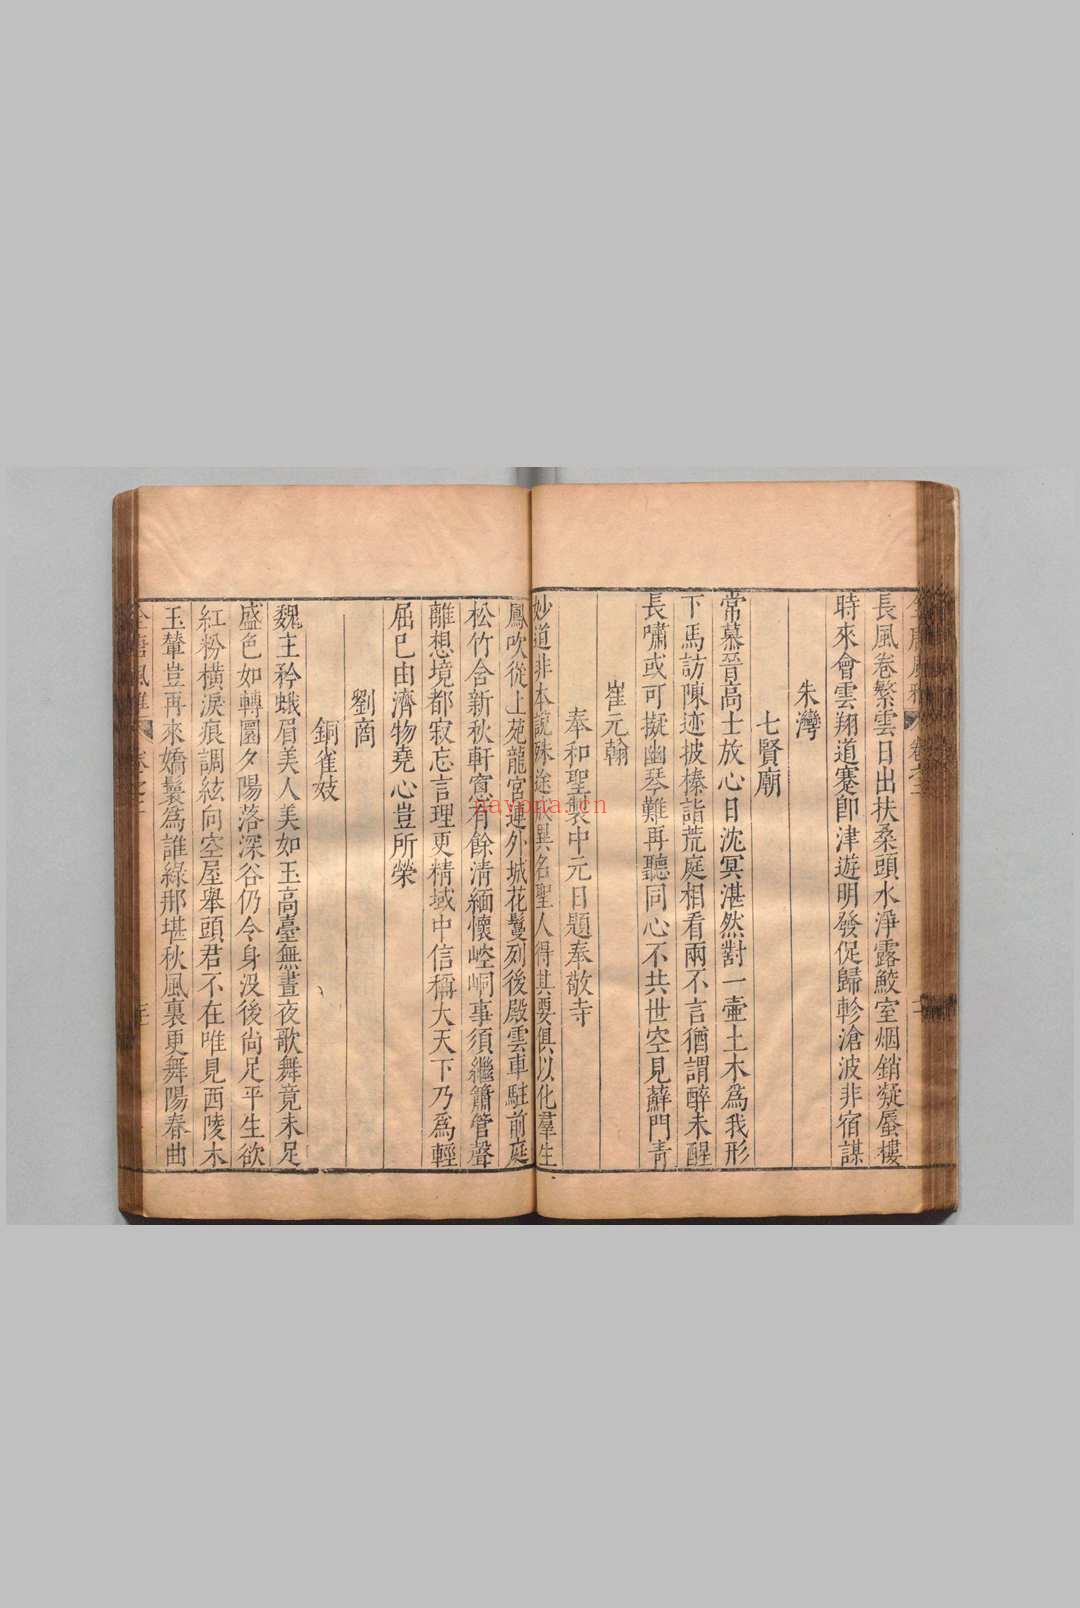 長風卷繁雲日出扶桑頭水淨露鮫室烟銷凝蜃樓
時來會雲翔道蹇即津遊明發促歸軫滄波非宿謀
朱灣
七賢廟
常慕晉高士放心日沈冥湛然對一壷土木為我形
下馬訪陳迹披榛詣荒庭相看兩不言猶謂醉未醒
長嘯或可擬幽琴難再聽同心不共世空見蘚門青
崔元翰
奉和聖製中元日題奉敬寺
妙道非本說殊途成異名聖人得其要俱以化羣生
鳳吹從上苑龍宮連外城花鬘列後殿雲車駐前庭
松竹含新秋軒窻有餘清緬懷崆峒事須繼簫管聲
離想境都寂忘言理更精域中信稱大天下乃為輕
屈巳由濟物堯心豈所榮
劉商
銅雀妓
魏主矜蛾眉美人美如玉高臺無晝夜歌舞竟未足
盛色如轉圜夕陽落深谷仍令身没後尚足平生欲
紅粉橫淚痕調絃向空屋舉頭君不在唯見西陵木
玉輦豈再來嬌鬟為誰綠那堪秋風裏更舞陽春曲
nayona.cn